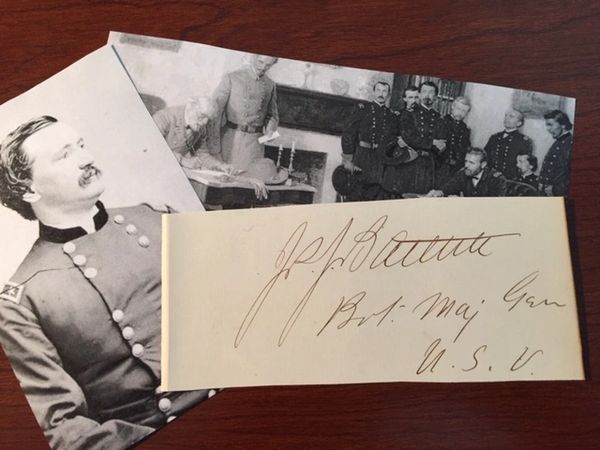 J. Bartlett
Bvt. Maj Gen
U. S. V.